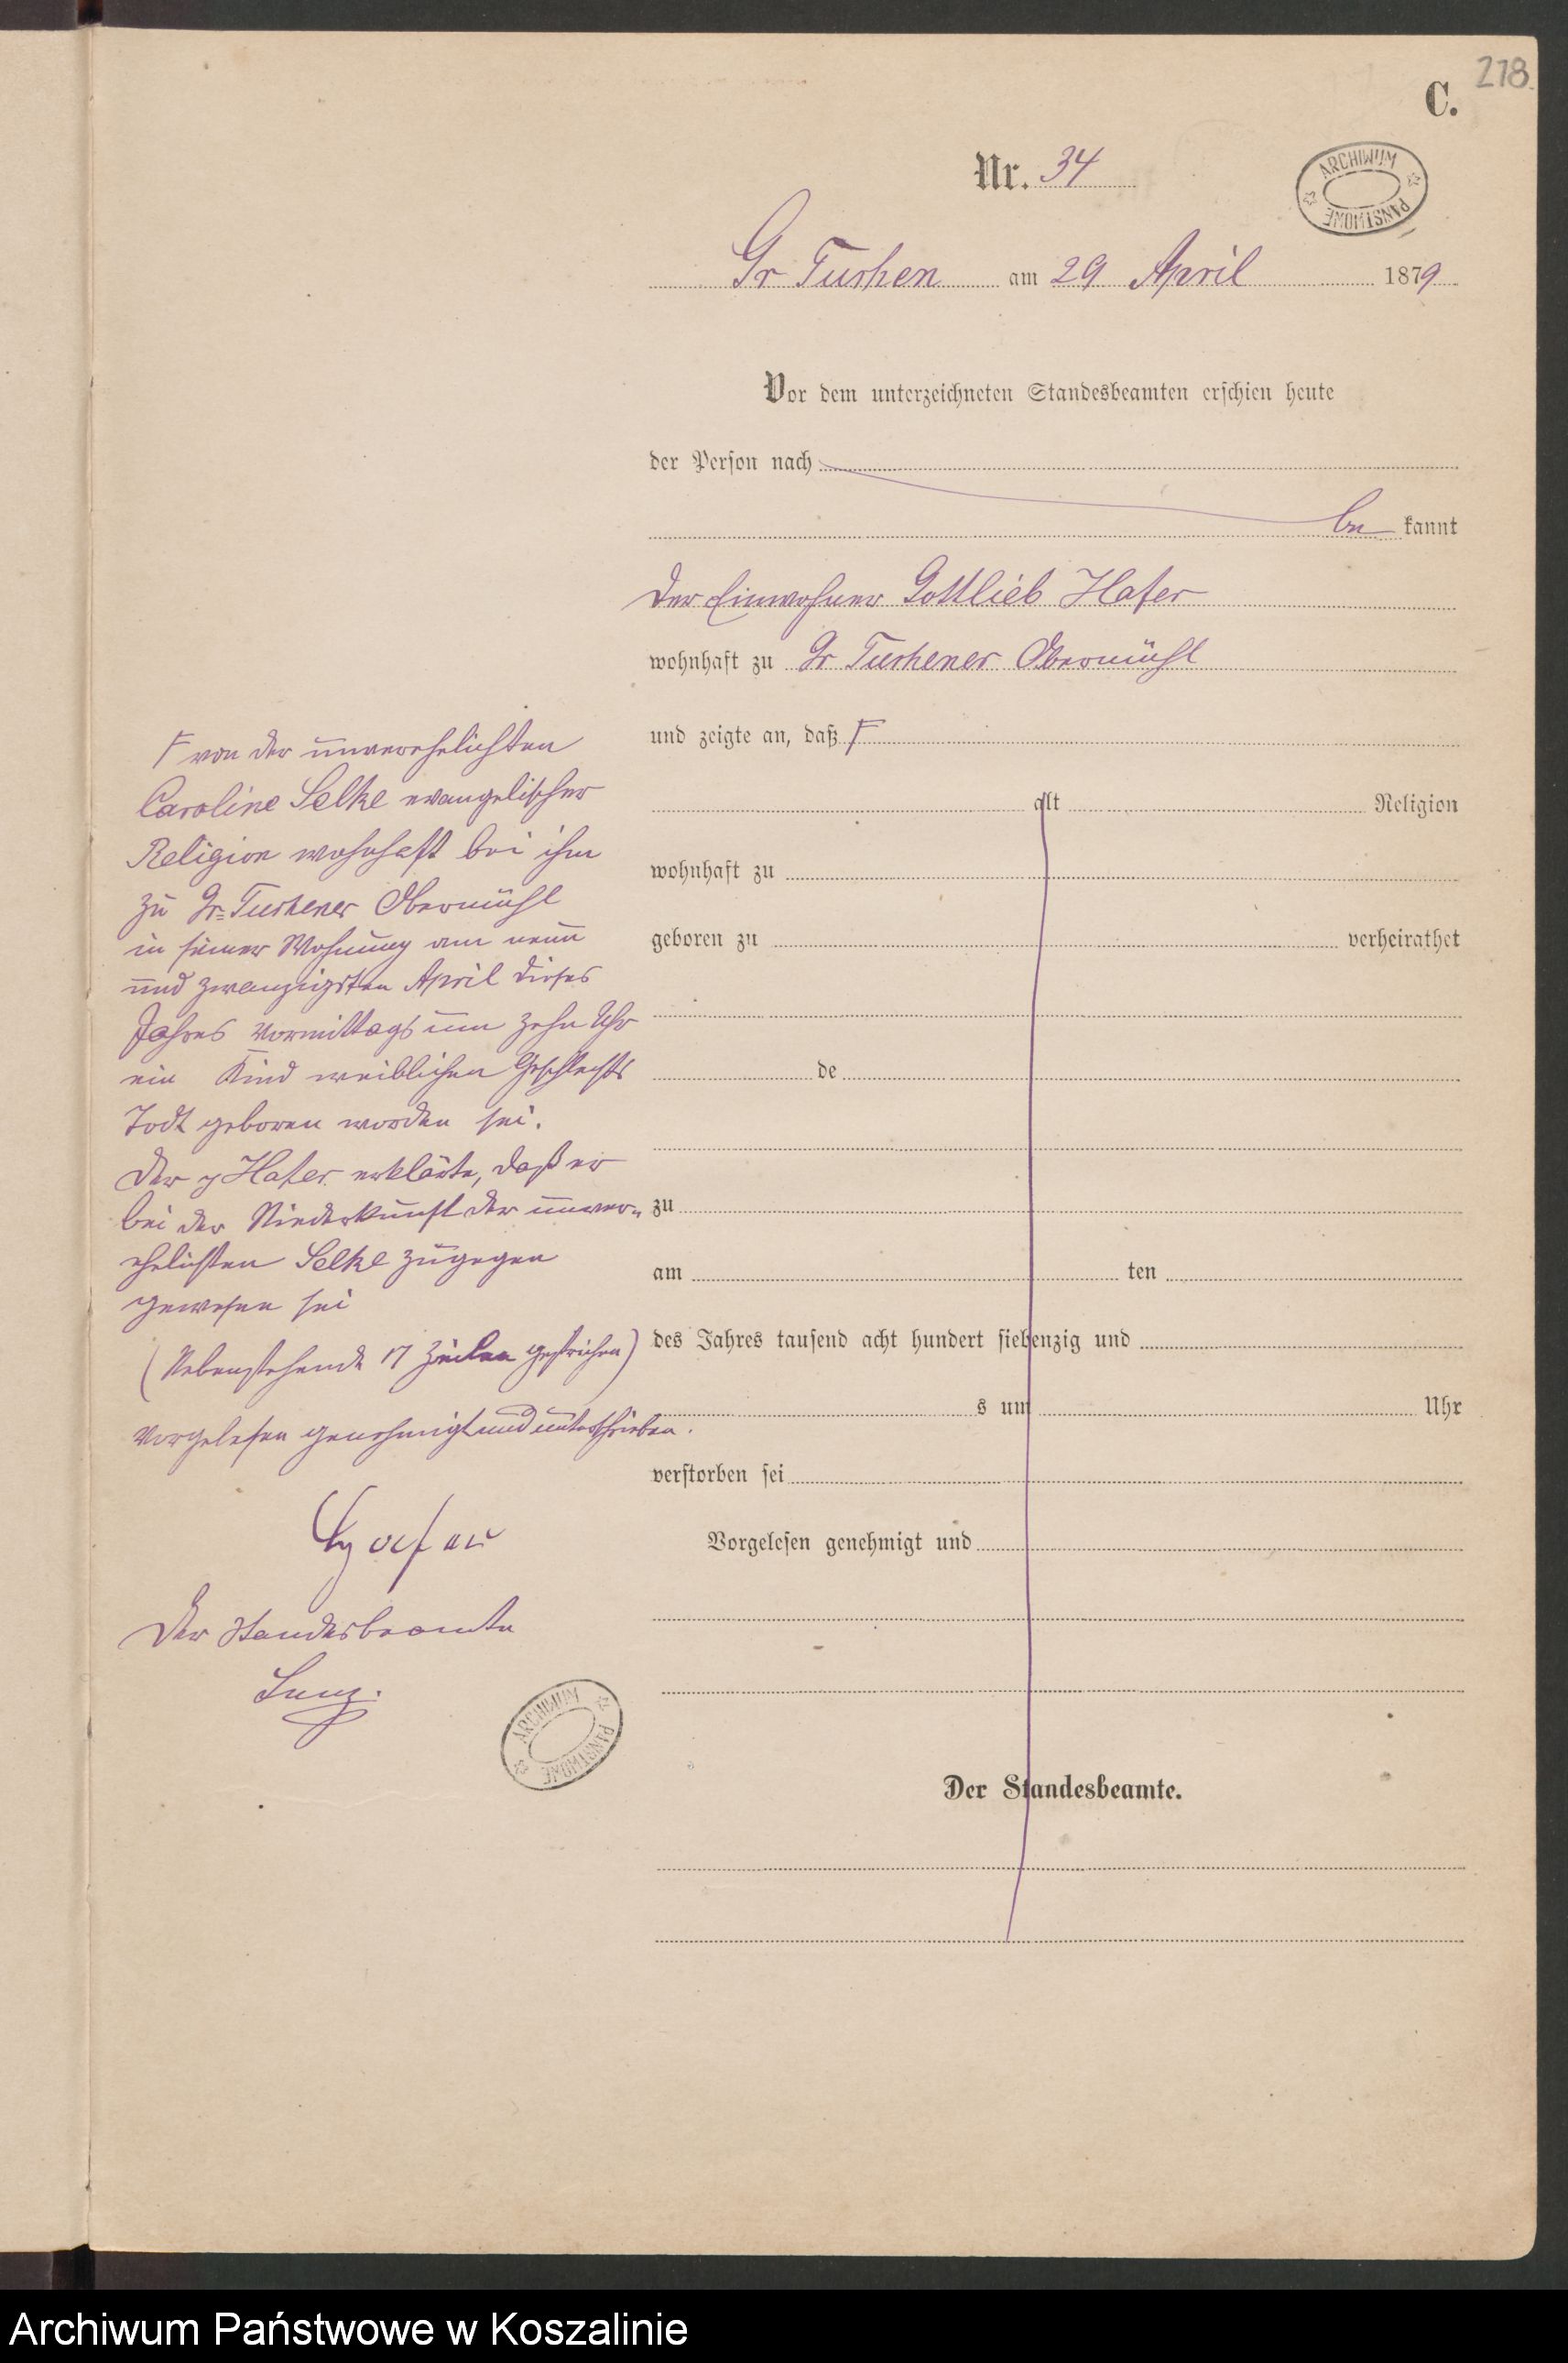 278.
C.
Nr. 34
ARCHIWUM PAŃSTWOWE
Gr Tuchen am 29 April 1879
Vor dem unterzeichneten Standesbeamten erschien heute
der Person nach
be kannt
der Einwohner Gottlieb Hafer
wohnhaft zu Gr Tuchener Obermühl
und zeigte an, daß F
alt Religion
wohnhaft zu
geboren zu verheirathet
de
zu
am ten
des Jahres tausend acht hundert siebenzig und
s um Uhr
verstorben sei
Vorgelesen genehmigt und
Der Standesbeamte.
F von der unverehelichten
Caroline Selke evangelischer
Religion wohnhaft bei ihm
zu Gr= Tuchener Obermühl
in seiner Wohnung am neun
und zwanzigsten April dieses
Jahres Vormittags um zehn Uhr
ein Kind weiblichen Geschlechts
Todt geboren worden sei.
Der p Hafer erklärte, daß er
bei der Niederkunft der unver-
ehelichten Selke zugegen
gewesen sei
(Nebenstehende 17 Zeilen gestrichen)
Vorgelesen genehmigt und unterschrieben.
Hafer
Der Standesbeamte
ARCHIWUM PAŃSTWOWE
Archiwum Państwowe w Koszalinie